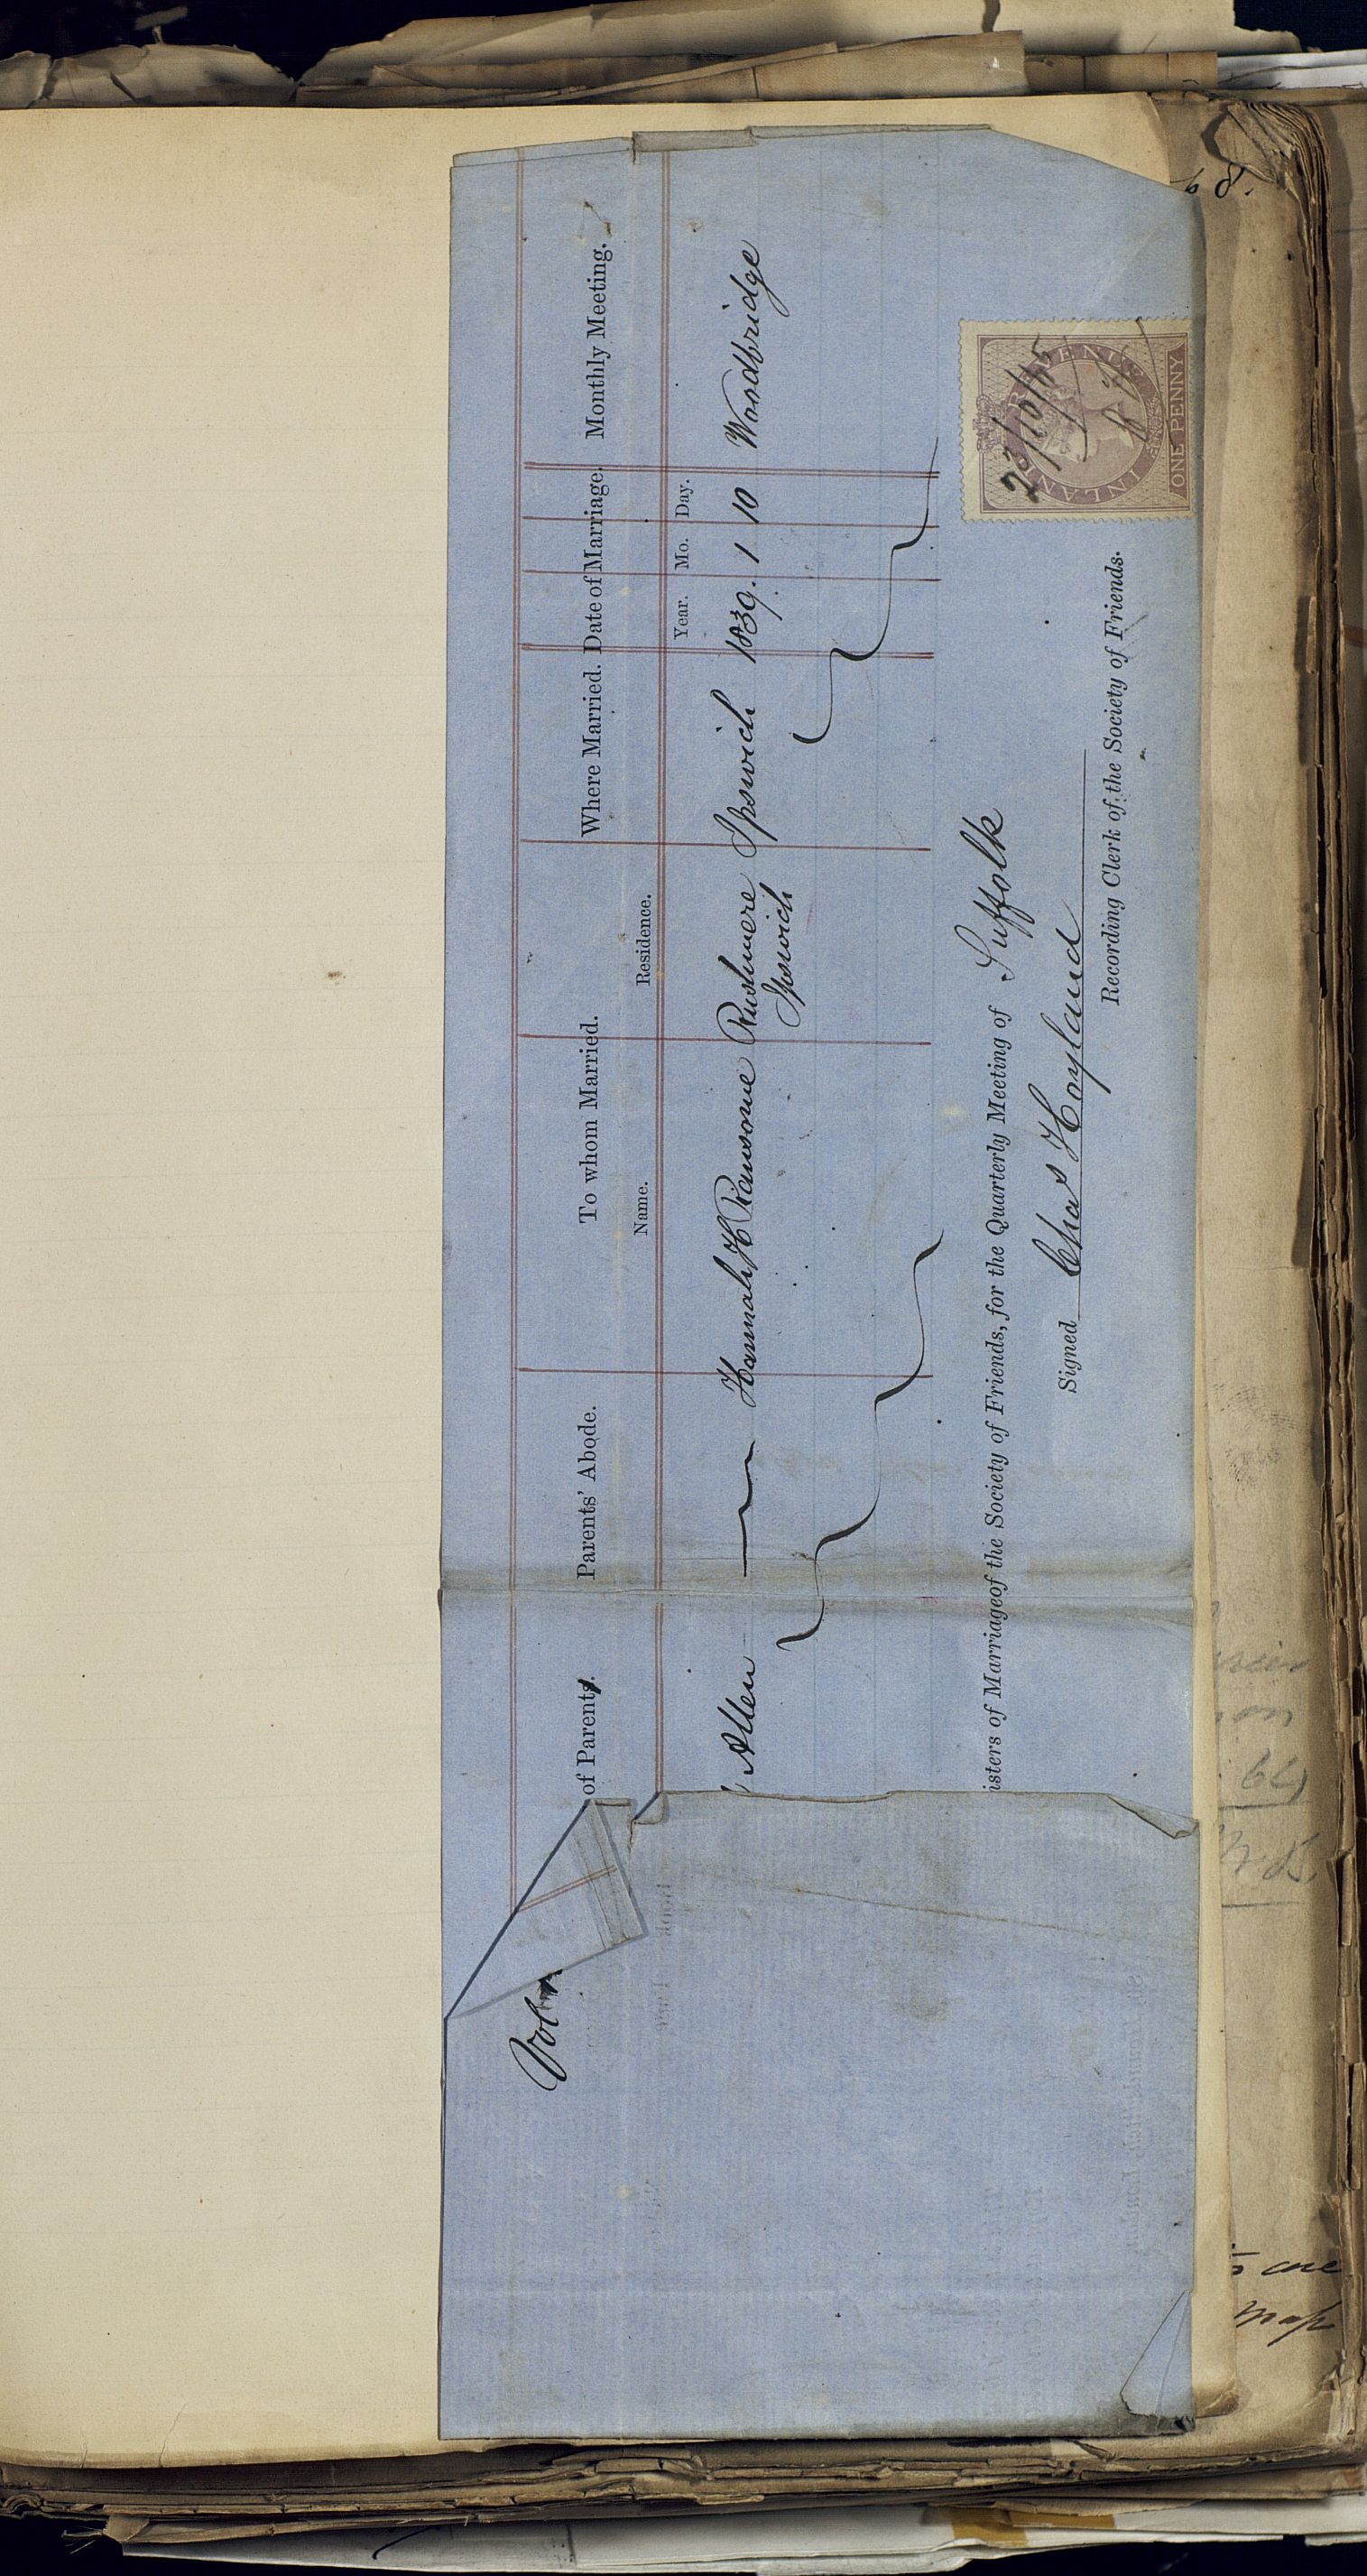 of Parents.
Parents' Abode.
To whom Married.
Where Married.
Date of Marriage.
Monthly Meeting.
Name.
Residence.
Year.
Mo.
Day.
Allen
Hannah H Ransome
Rushmere
Ipswich
Ipswich
1839.
1
10
Woodbridge
isters of Marriage of the Society of Friends, for the Quarterly Meeting of Suffolk
Signed Chas Hoyland
Recording Clerk of the Society of Friends.
INLAND REVENUE
ONE PENNY